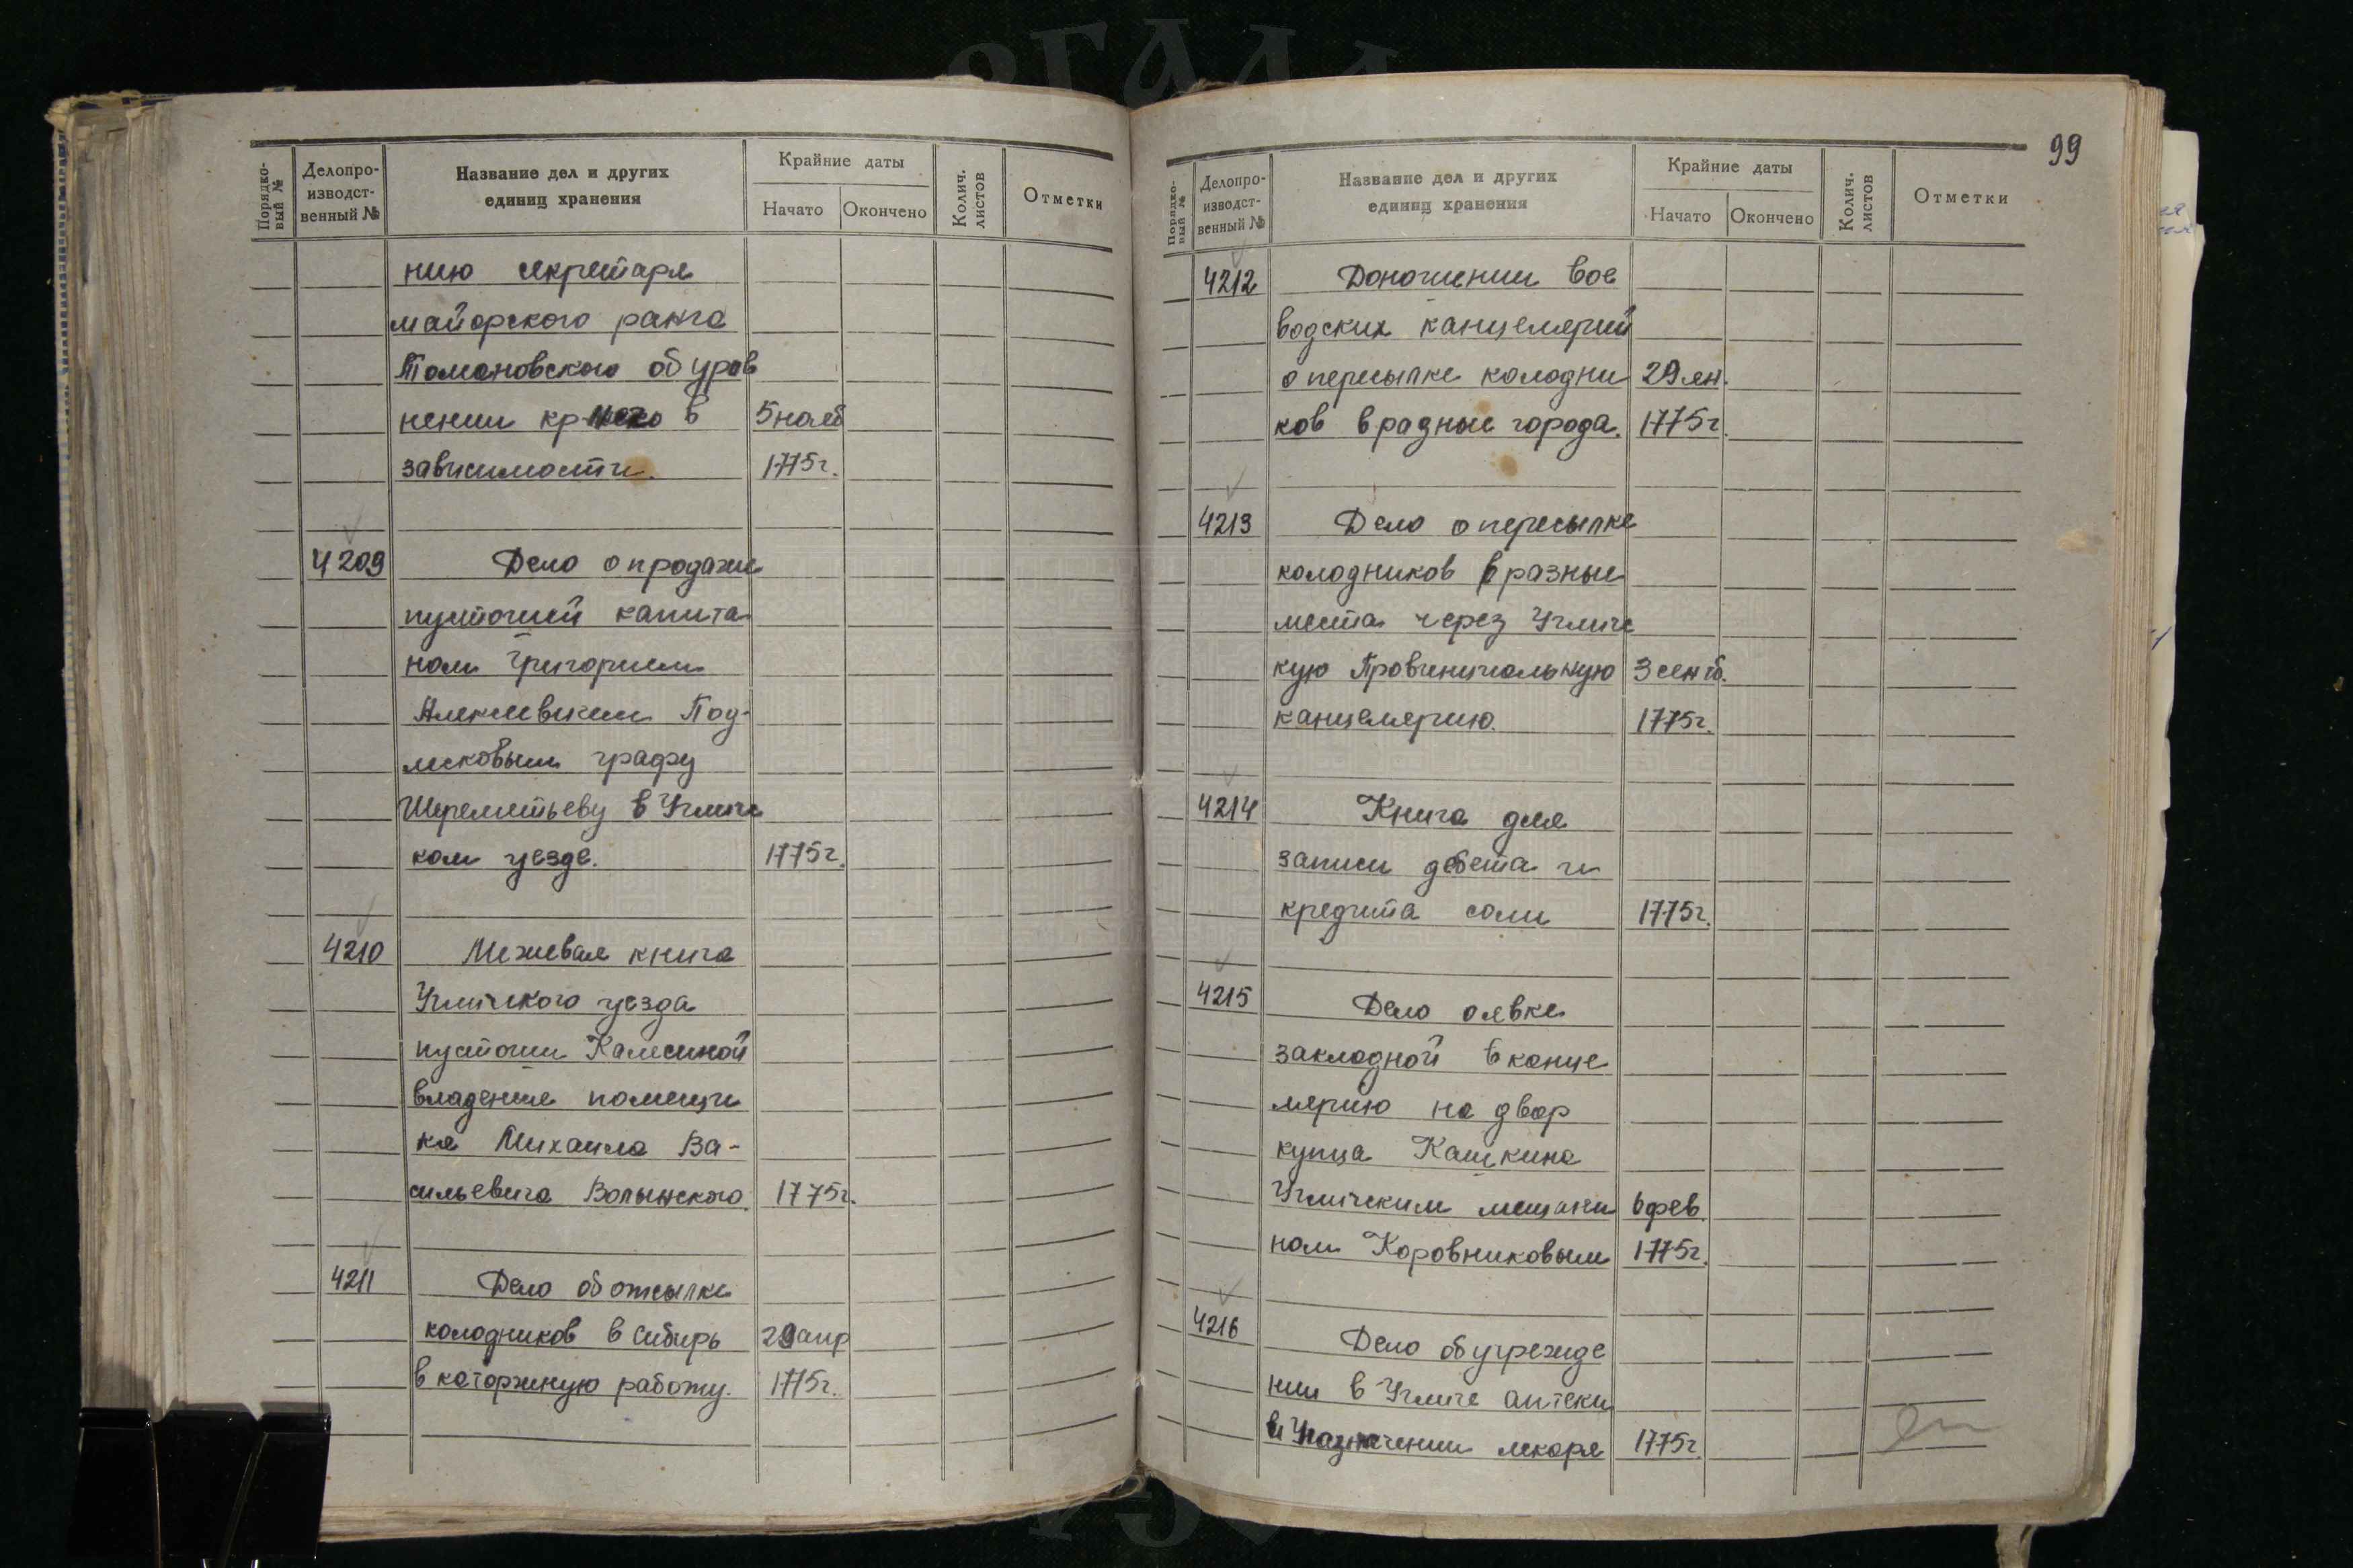 Порядко-
вый №
Делопро-
изводст-
венный №
Название дел и других
единиц хранения
Крайние даты
Начато
Окончено
Колич.
листов
Отметки
нию секретаря
майорского ранга
Томановского об уров
нении кр в
5 нояб
зависимости.
1775г.
4209
Дело о продажи
пустошей капита
ном Григорием
Алексеевичем Под-
лесковым графу
Шереметьеву в Углич
ком уезде.
1775г.
4210
Межевая книга
Угличского уезда
пустоши
владение помещи
ка Михаила Ва-
сильевича Волынского.
1775г.
4211
Дело об отсылке
колодников в Сибирь
29 апр
в каторжную работу.
1775г.
99
Порядко-
вый №
Делопро-
изводст-
венный №
Название дел и других
единиц хранения
Крайние даты
Начато
Окончено
Колич.
листов
Отметки
4212
Доношении вое
водских канцелярий
о пересылке колодни
29 ян.
ков в разные города.
1775г
4213
Дело о пересылке
колодников в разные
места через Угличс
кую Провинциальную
3 сентб.
канцелярию.
1775г.
4214
Книга для
записи дебета и
кредита соли
1775г.
4215
Дело о явке
закладной в канце
лярию на двор
купца Кашкина
Угличским мещани
6 фев.
ном Коровниковым
1775г.
4216
Дело об учрежде
нии в Угличе аптеки
и назначении лекаря
1775г.